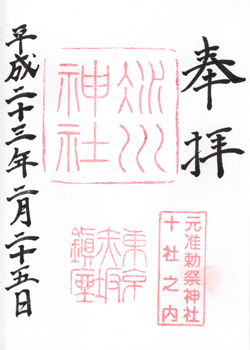 奉拝
氷川
神社
元准勅祭神社
十社之内
東京
赤坂
鎮座
平成二十三年二月二十五日